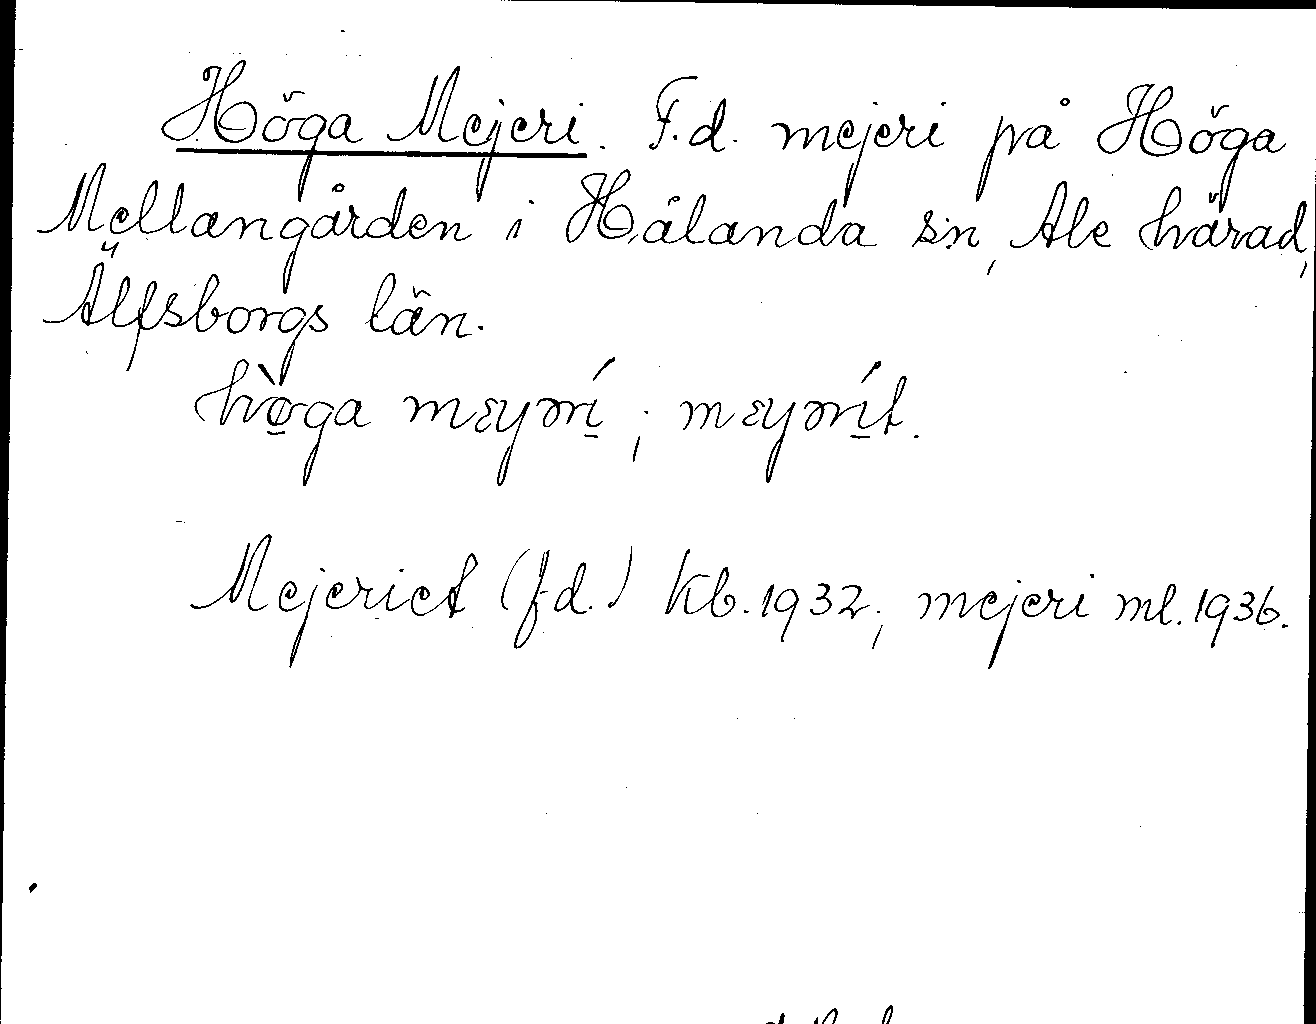 Höga Mejeri. F.d. mejeri på Höga
Mellangården i Hålanda sn, Ale härad,
Älfsborgs län.
hø̀ga mɛyərí; mɛyərít.
Mejeriet (f.d.) Kb. 1932; mejeri ml. 1936.